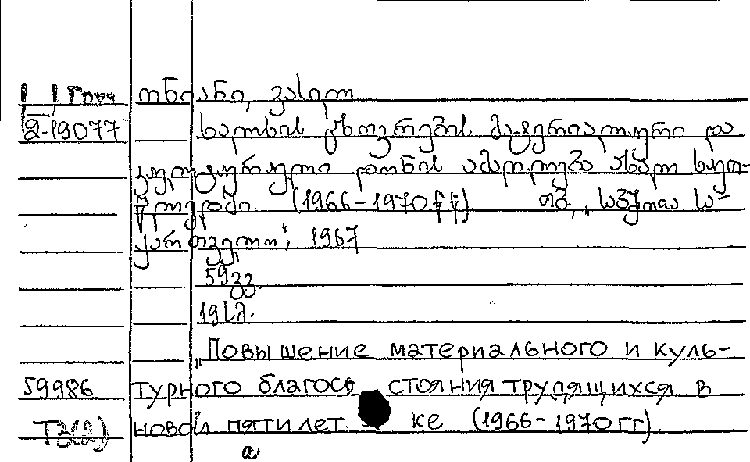 ონიანი, ვასილ
2-19077 ხალხის ცხოვრების მატერიალური და
კულტურული დონის ამაღლება ახალ ხუთ-
წლედში (1966-1970 წწ) თბ., საბჭოთა სა-
ქართველო", 1967
59გვ.
19სმ.
"Повышение материального и куль-
59986 турного благосо стояния трудящихся в
новой пятилет ке (1966-1970гг)
а